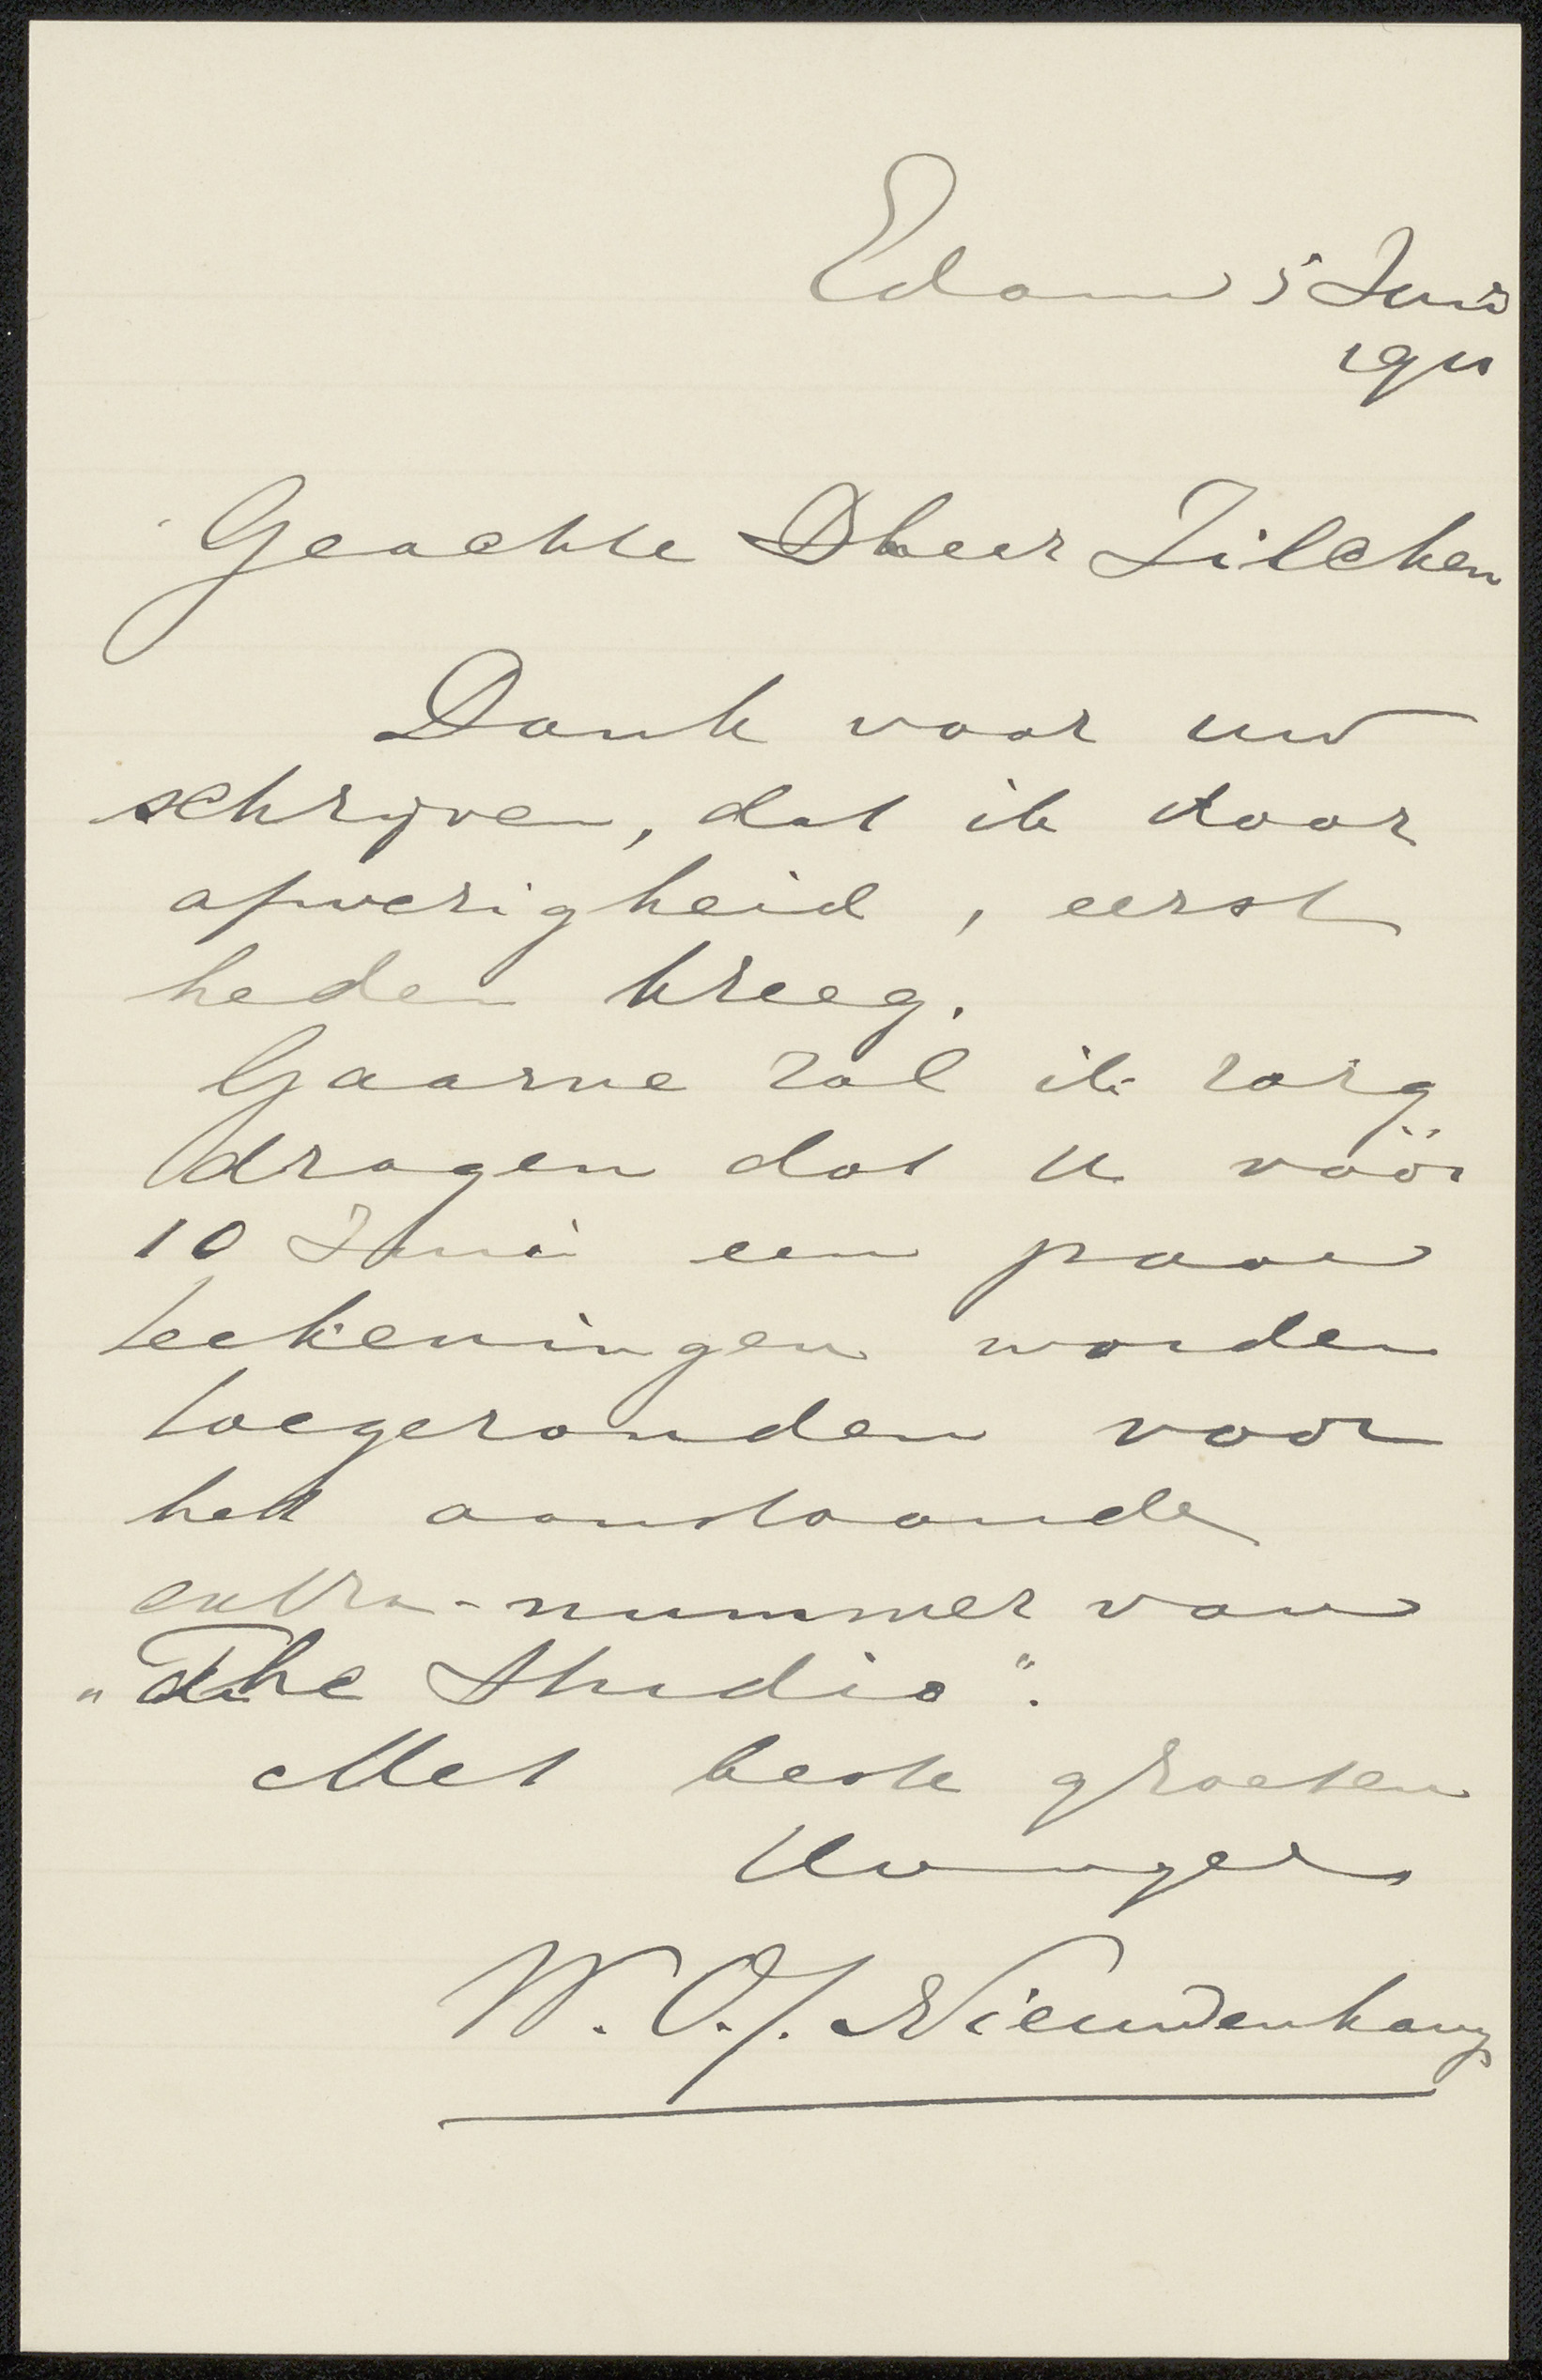 Edam 5 Juni
1911
Geachte Dheer Zilcken
Dank voor uw
schrijven, dat ik door
afwezigheid, eerst
heden kreeg.
Gaarne zal ik zorg
dragen dat u vöör
10 Juni een paar
teekeningen worden
toegezonden voor
het aanstaande
extra-nummer van
„The Studio".
Met beste groeten
W. O. J. Nieuwenkamp